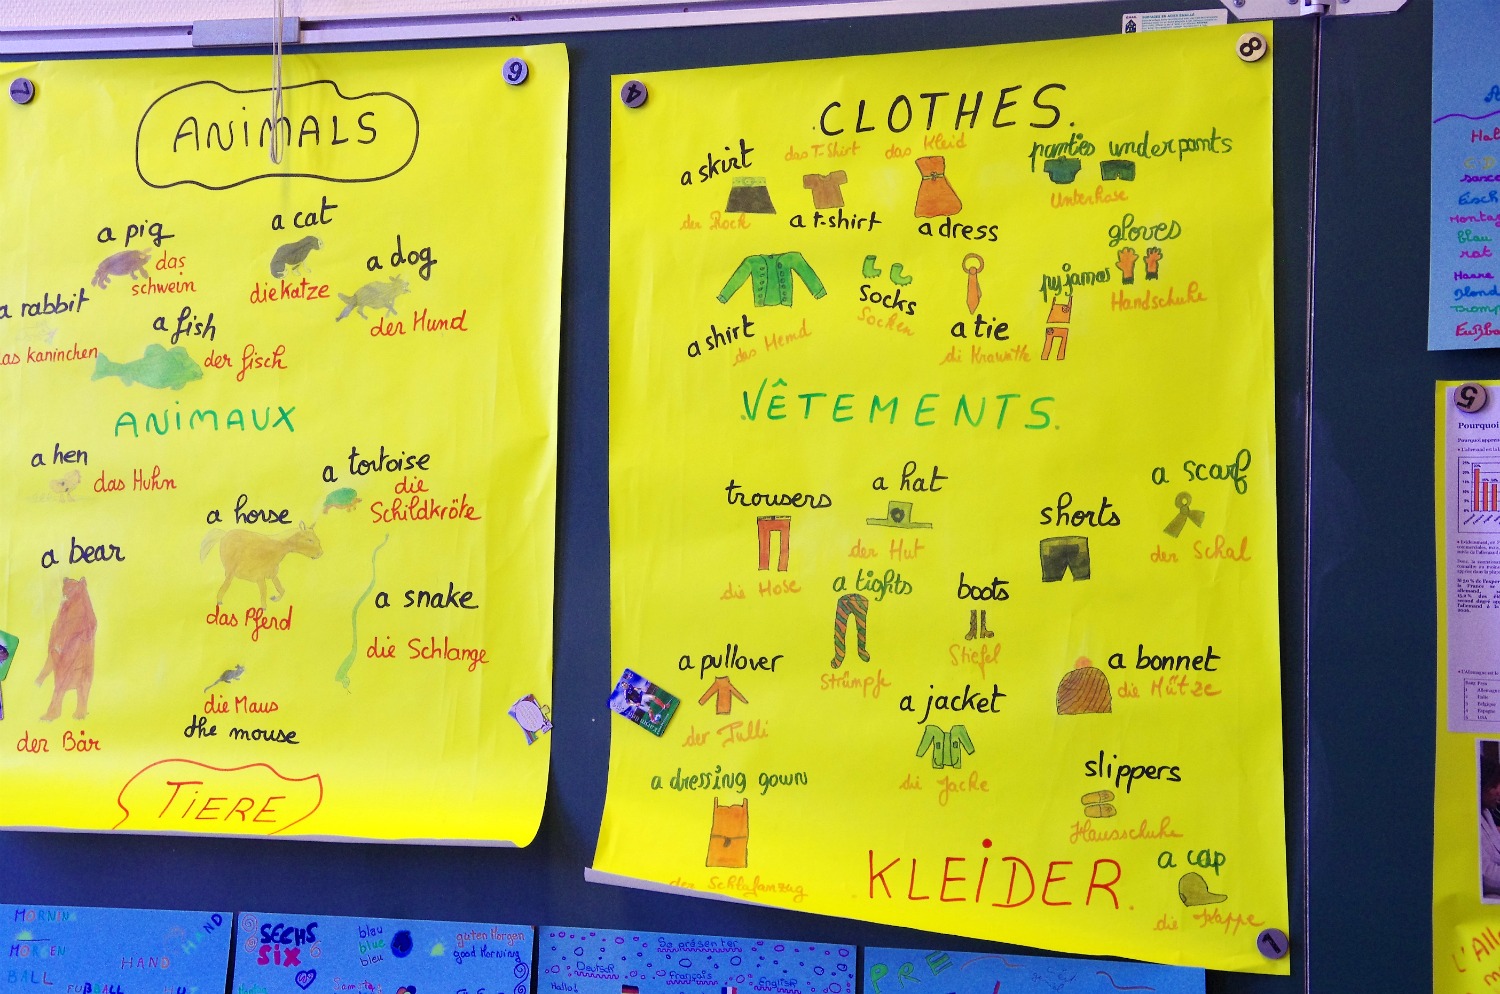 ANiMALS
a pig
das
schwein
a cat
die katze
a dog
der Hund
a rabbit
das kaninchen
a fish
der fisch
ANiMAUX
a hen
das Huhn
a tortoise
die
Schildkröte
a horse
das Pferd
a bear
der Bär
a snake
die Schlange
die Maus
the mouse
TiERE
7
6
4
8
CLOTHES.
a skirt
der Rock
das T-Shirt
a t-shirt
das Kleid
a dress
panties underpants
Unterhose
gloves
Handschuhe
a shirt
das Hemd
socks
Socken
a tie
di Krawatte
pyjamas
VÊTEMENTS.
trousers
die Hose
a hat
der Hut
shorts
a scarf
der Schal
a tights
Strümpfe
boots
Stiefel
a pullover
der Pulli
a jacket
di Jacke
a bonnet
die Mütze
a dressing gown
der Schlafanzug
slippers
Hausschuhe
KLEiDER.
a cap
die Kappe
1
5
Pourquoi
MORNING
MORGEN
BALL
HAND
HAND
FUßBALL
SECHS
SiX
blau
blue
bleu
guten Morgen
good Morning
Se présenter
Deutsch
Français
English
Hallo!
L'All